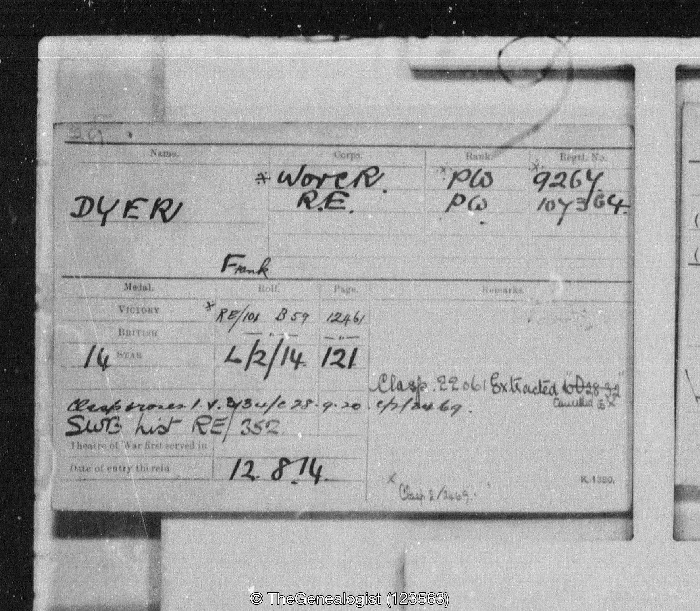 Name. Corps. Rank. Regtl. No.
* Worc R. Pte 9264
DYER R.E. Pte
Frank
Medal. Roll. Page. Remarks.
VICTORY * RE/101 B59 12461
BRITISH — „ — — „ —
14 STAR L/2/14 121
Clasp 22061 Extracted
Cancelled
28.9.20
SWB List RE/352
Theatre of War first served in
Date of entry therein 12.8.14.
K. 1380.
x Clasp 2/2469.
© TheGenealogist (123563)